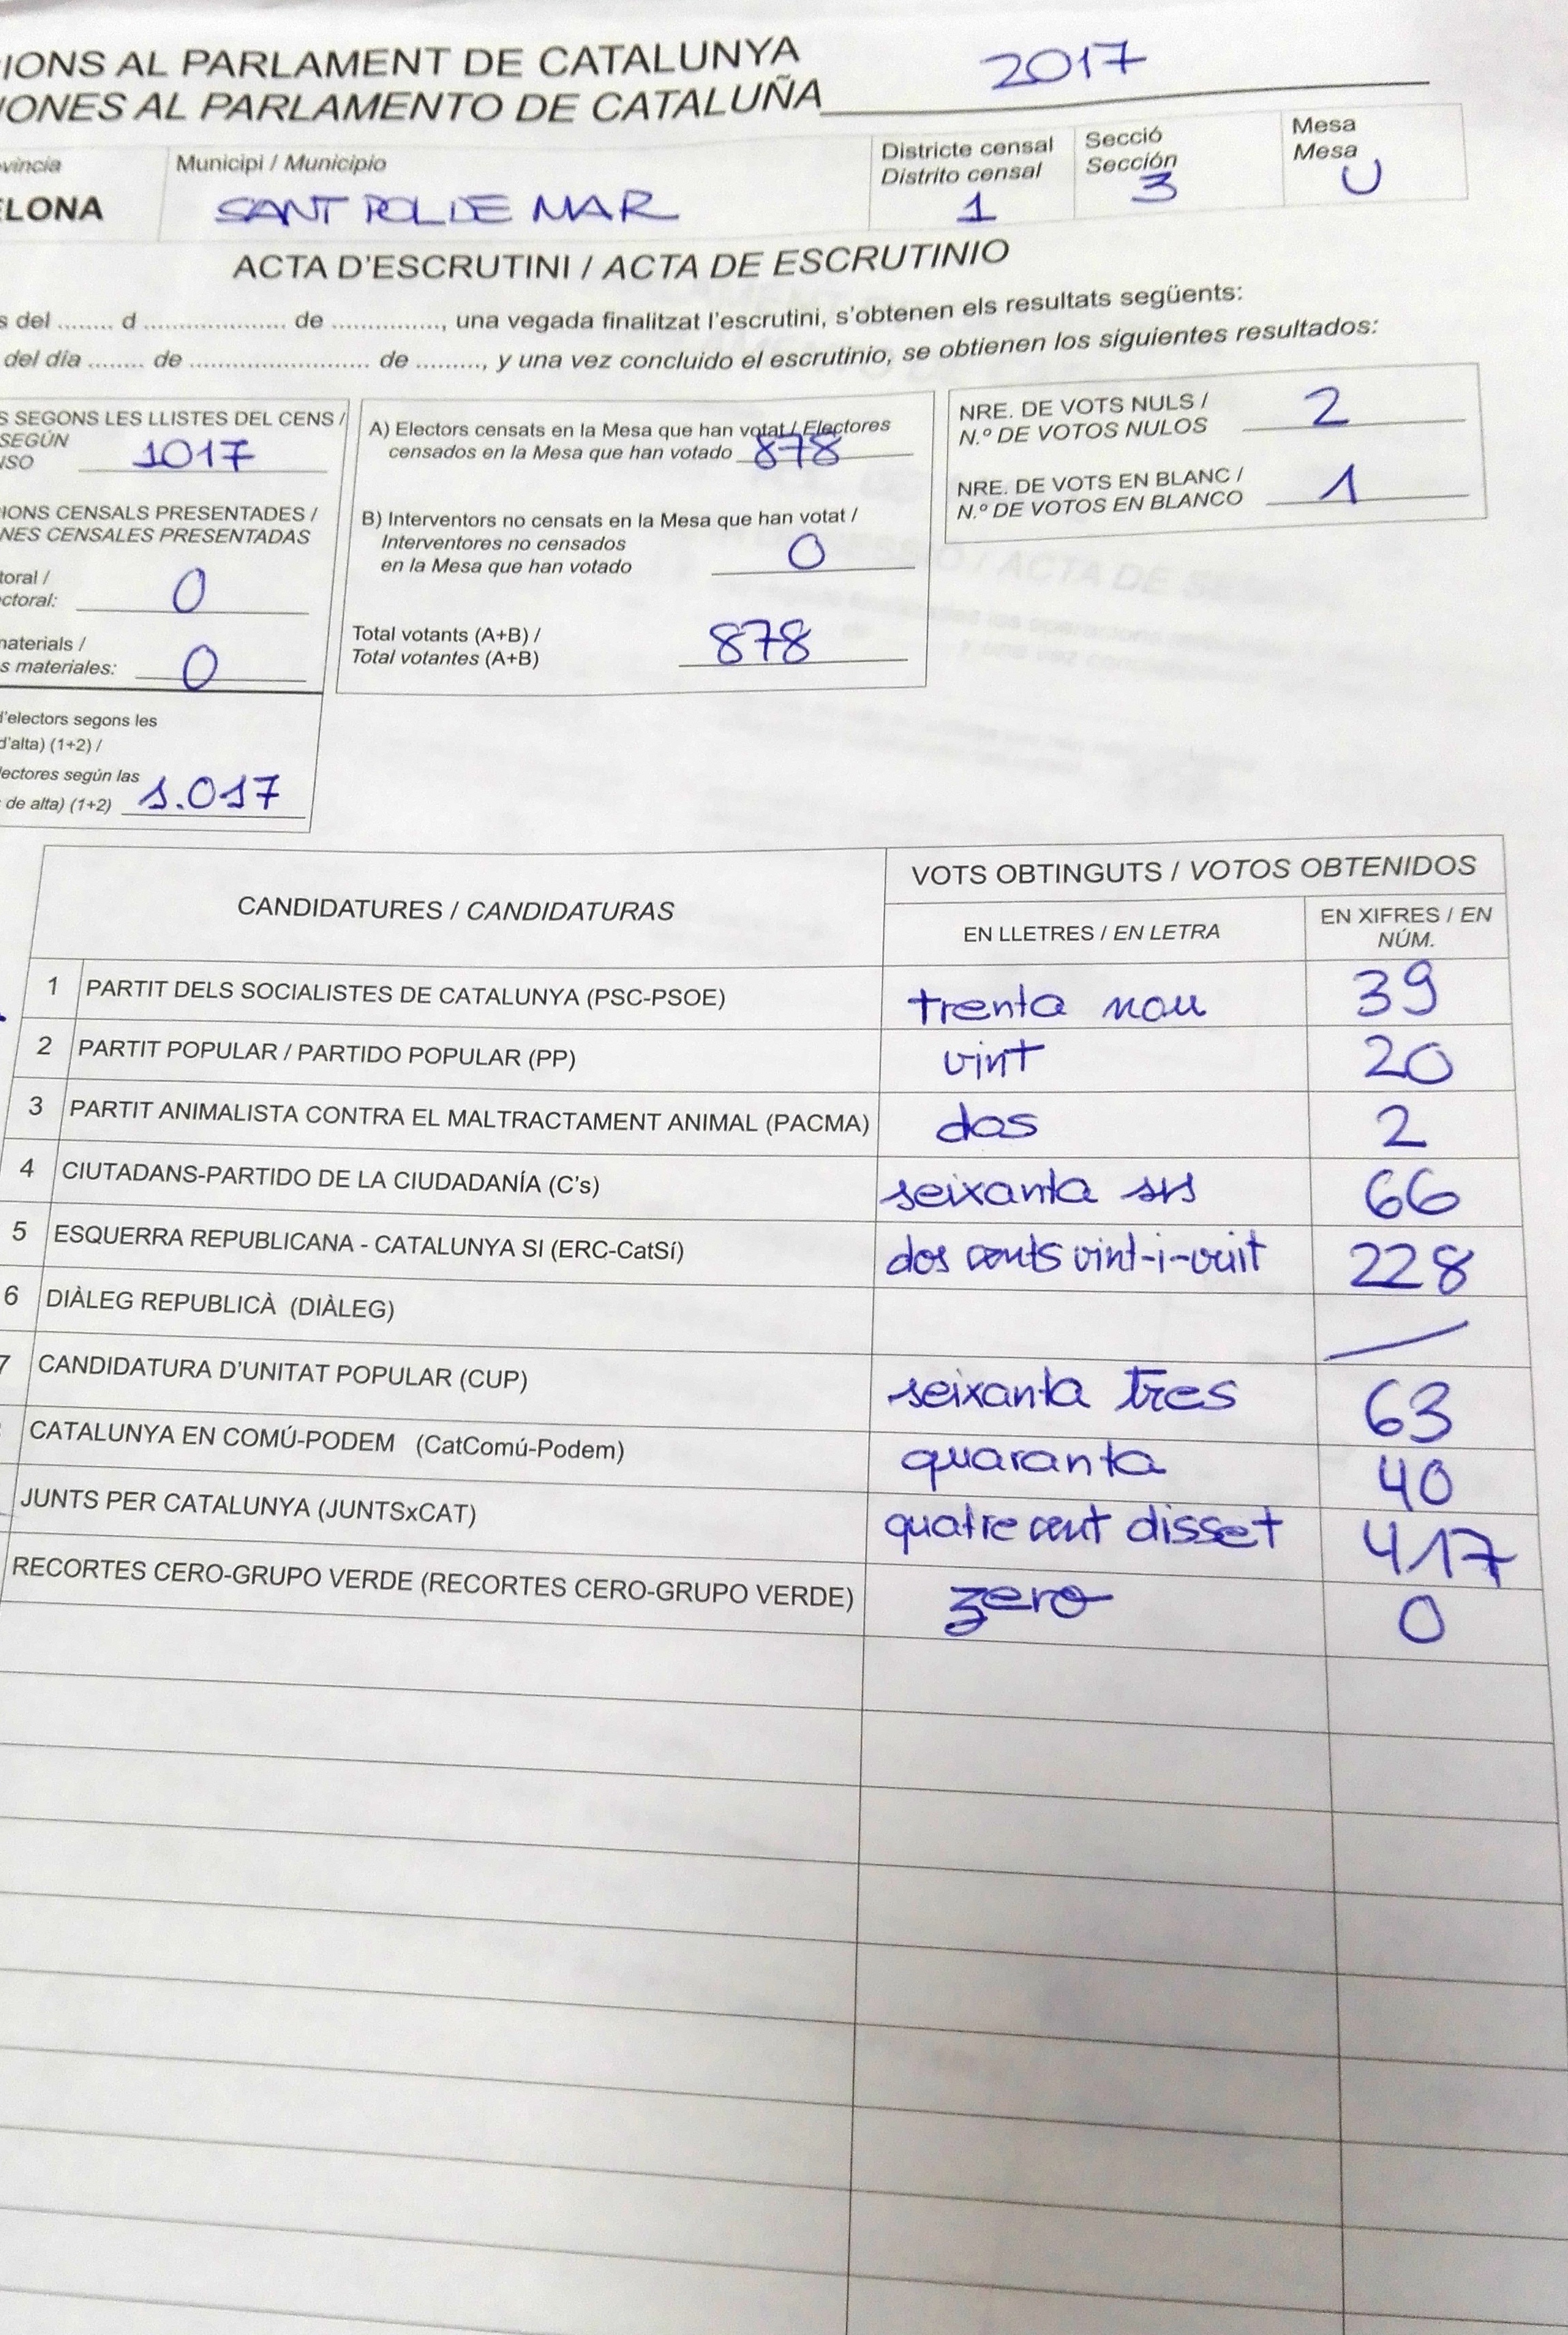 IONS AL PARLAMENT DE CATALUNYA
IONES AL PARLAMENTO DE CATALUÑA 2017
vincia
ELONA
Municipi / Municipio
SANT POL DE MAR
Districte censal
Distrito censal
1
Secció
Sección
3
Mesa
Mesa
U
ACTA D'ESCRUTINI / ACTA DE ESCRUTINIO
s del ........ d .................... de ..............., una vegada finalitzat l'escrutini, s'obtenen els resultats següents:
del día ........ de .......................... de .........., y una vez concluido el escrutinio, se obtienen los siguientes resultados:
S SEGONS LES LLISTES DEL CENS /
SEGÚN
NSO 1017
IONS CENSALS PRESENTADES /
NES CENSALES PRESENTADAS
toral /
ctoral: 0
materials /
s materiales: 0
d'electors segons les
d'alta) (1+2) /
lectores según las
de alta) (1+2) 1.017
A) Electors censats en la Mesa que han votat / Electores
censados en la Mesa que han votado 878
B) Interventors no censats en la Mesa que han votat /
Interventores no censados
en la Mesa que han votado 0
Total votants (A+B) /
Total votantes (A+B) 878
NRE. DE VOTS NULS /
N.º DE VOTOS NULOS 2
NRE. DE VOTS EN BLANC /
N.º DE VOTOS EN BLANCO 1
CANDIDATURES / CANDIDATURAS
VOTS OBTINGUTS / VOTOS OBTENIDOS
EN LLETRES / EN LETRA
EN XIFRES / EN
NÚM.
1 PARTIT DELS SOCIALISTES DE CATALUNYA (PSC-PSOE) trenta nou 39
2 PARTIT POPULAR / PARTIDO POPULAR (PP) vint 20
3 PARTIT ANIMALISTA CONTRA EL MALTRACTAMENT ANIMAL (PACMA) dos 2
4 CIUTADANS-PARTIDO DE LA CIUDADANÍA (C's) seixanta sis 66
5 ESQUERRA REPUBLICANA - CATALUNYA SI (ERC-CatSí) dos cents vint-i-vuit 228
6 DIÀLEG REPUBLICÀ (DIÀLEG)
7 CANDIDATURA D'UNITAT POPULAR (CUP) seixanta tres 63
CATALUNYA EN COMÚ-PODEM (CatComú-Podem) quaranta 40
JUNTS PER CATALUNYA (JUNTSxCAT) quatre cent disset 417
RECORTES CERO-GRUPO VERDE (RECORTES CERO-GRUPO VERDE) zero 0